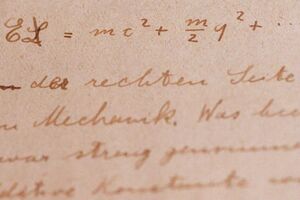 EL = mc² + m/2 q² + ...
der rechten Seite
Mechanik. Was
war streng genommen
Konstante